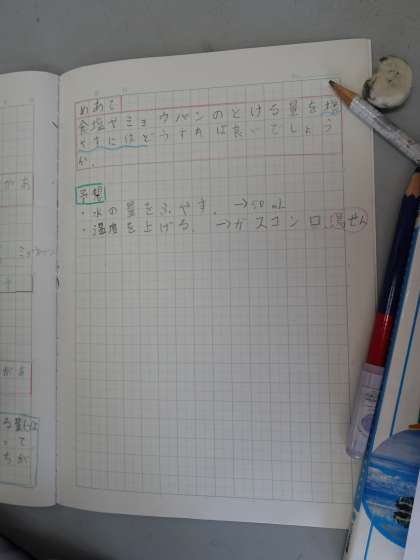 めあて
食塩やミョウバンのとける量を増
やすにはどうすれば良いでしょう
か。
予想
・水の量をふやす。 →50mL
・温度を上げる。 →ガスコンロ 湯せん
があ
がある
る量には
って
ちが